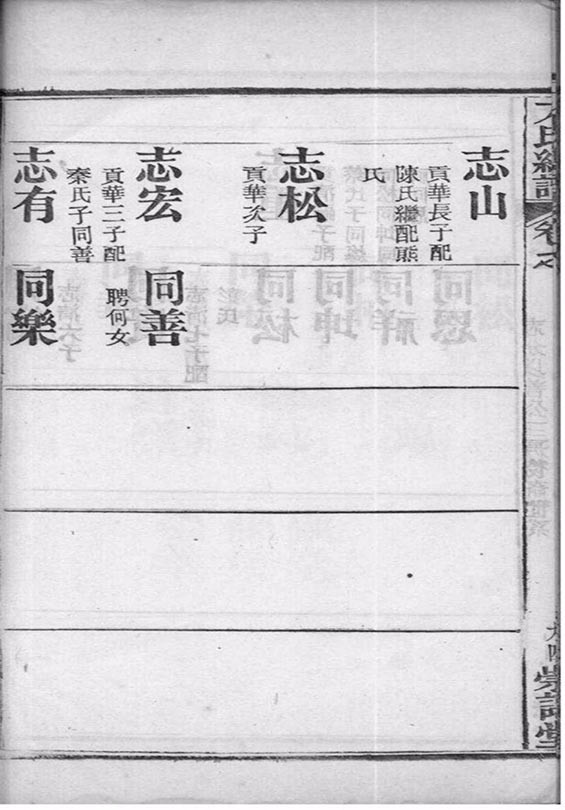 志山
貢華長子配
陳氏繼配熊
氏
志松
貢華次子
志宏
貢華三子配
秦氏子同善
志有
同善
聘何女
同樂
氏續譜
卷之
堂